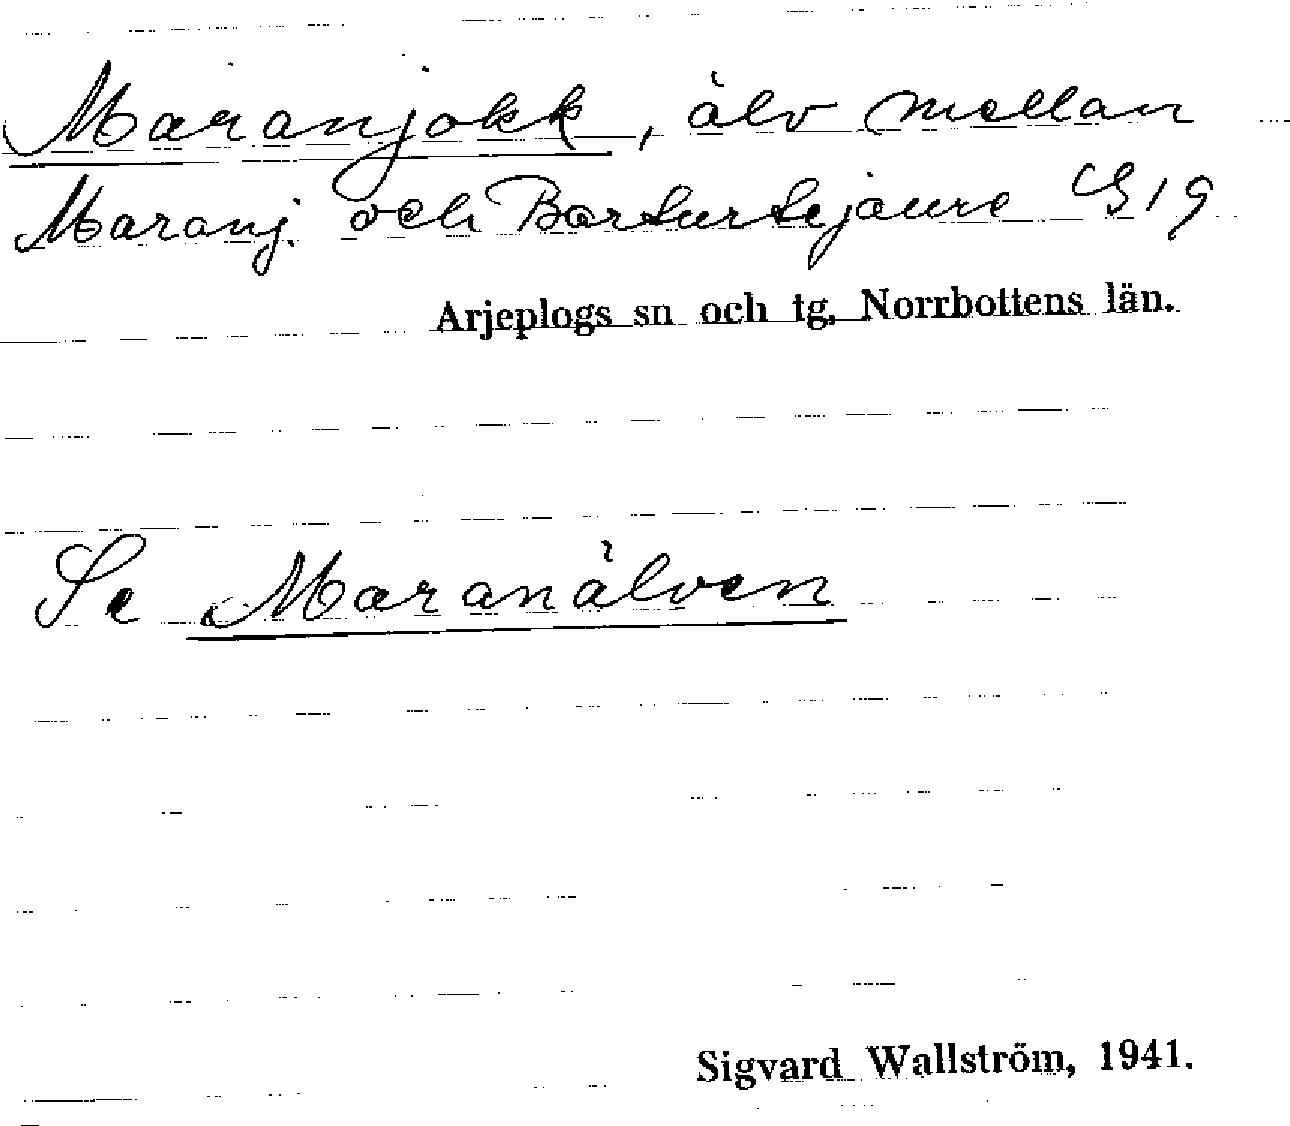 Maranjokk, älv mellan
Maranj. och Barturtejaure S 19
Arjeplogs sn och tg. Norrbottens län.
Se Maranälven
Sigvard Wallström, 1941.